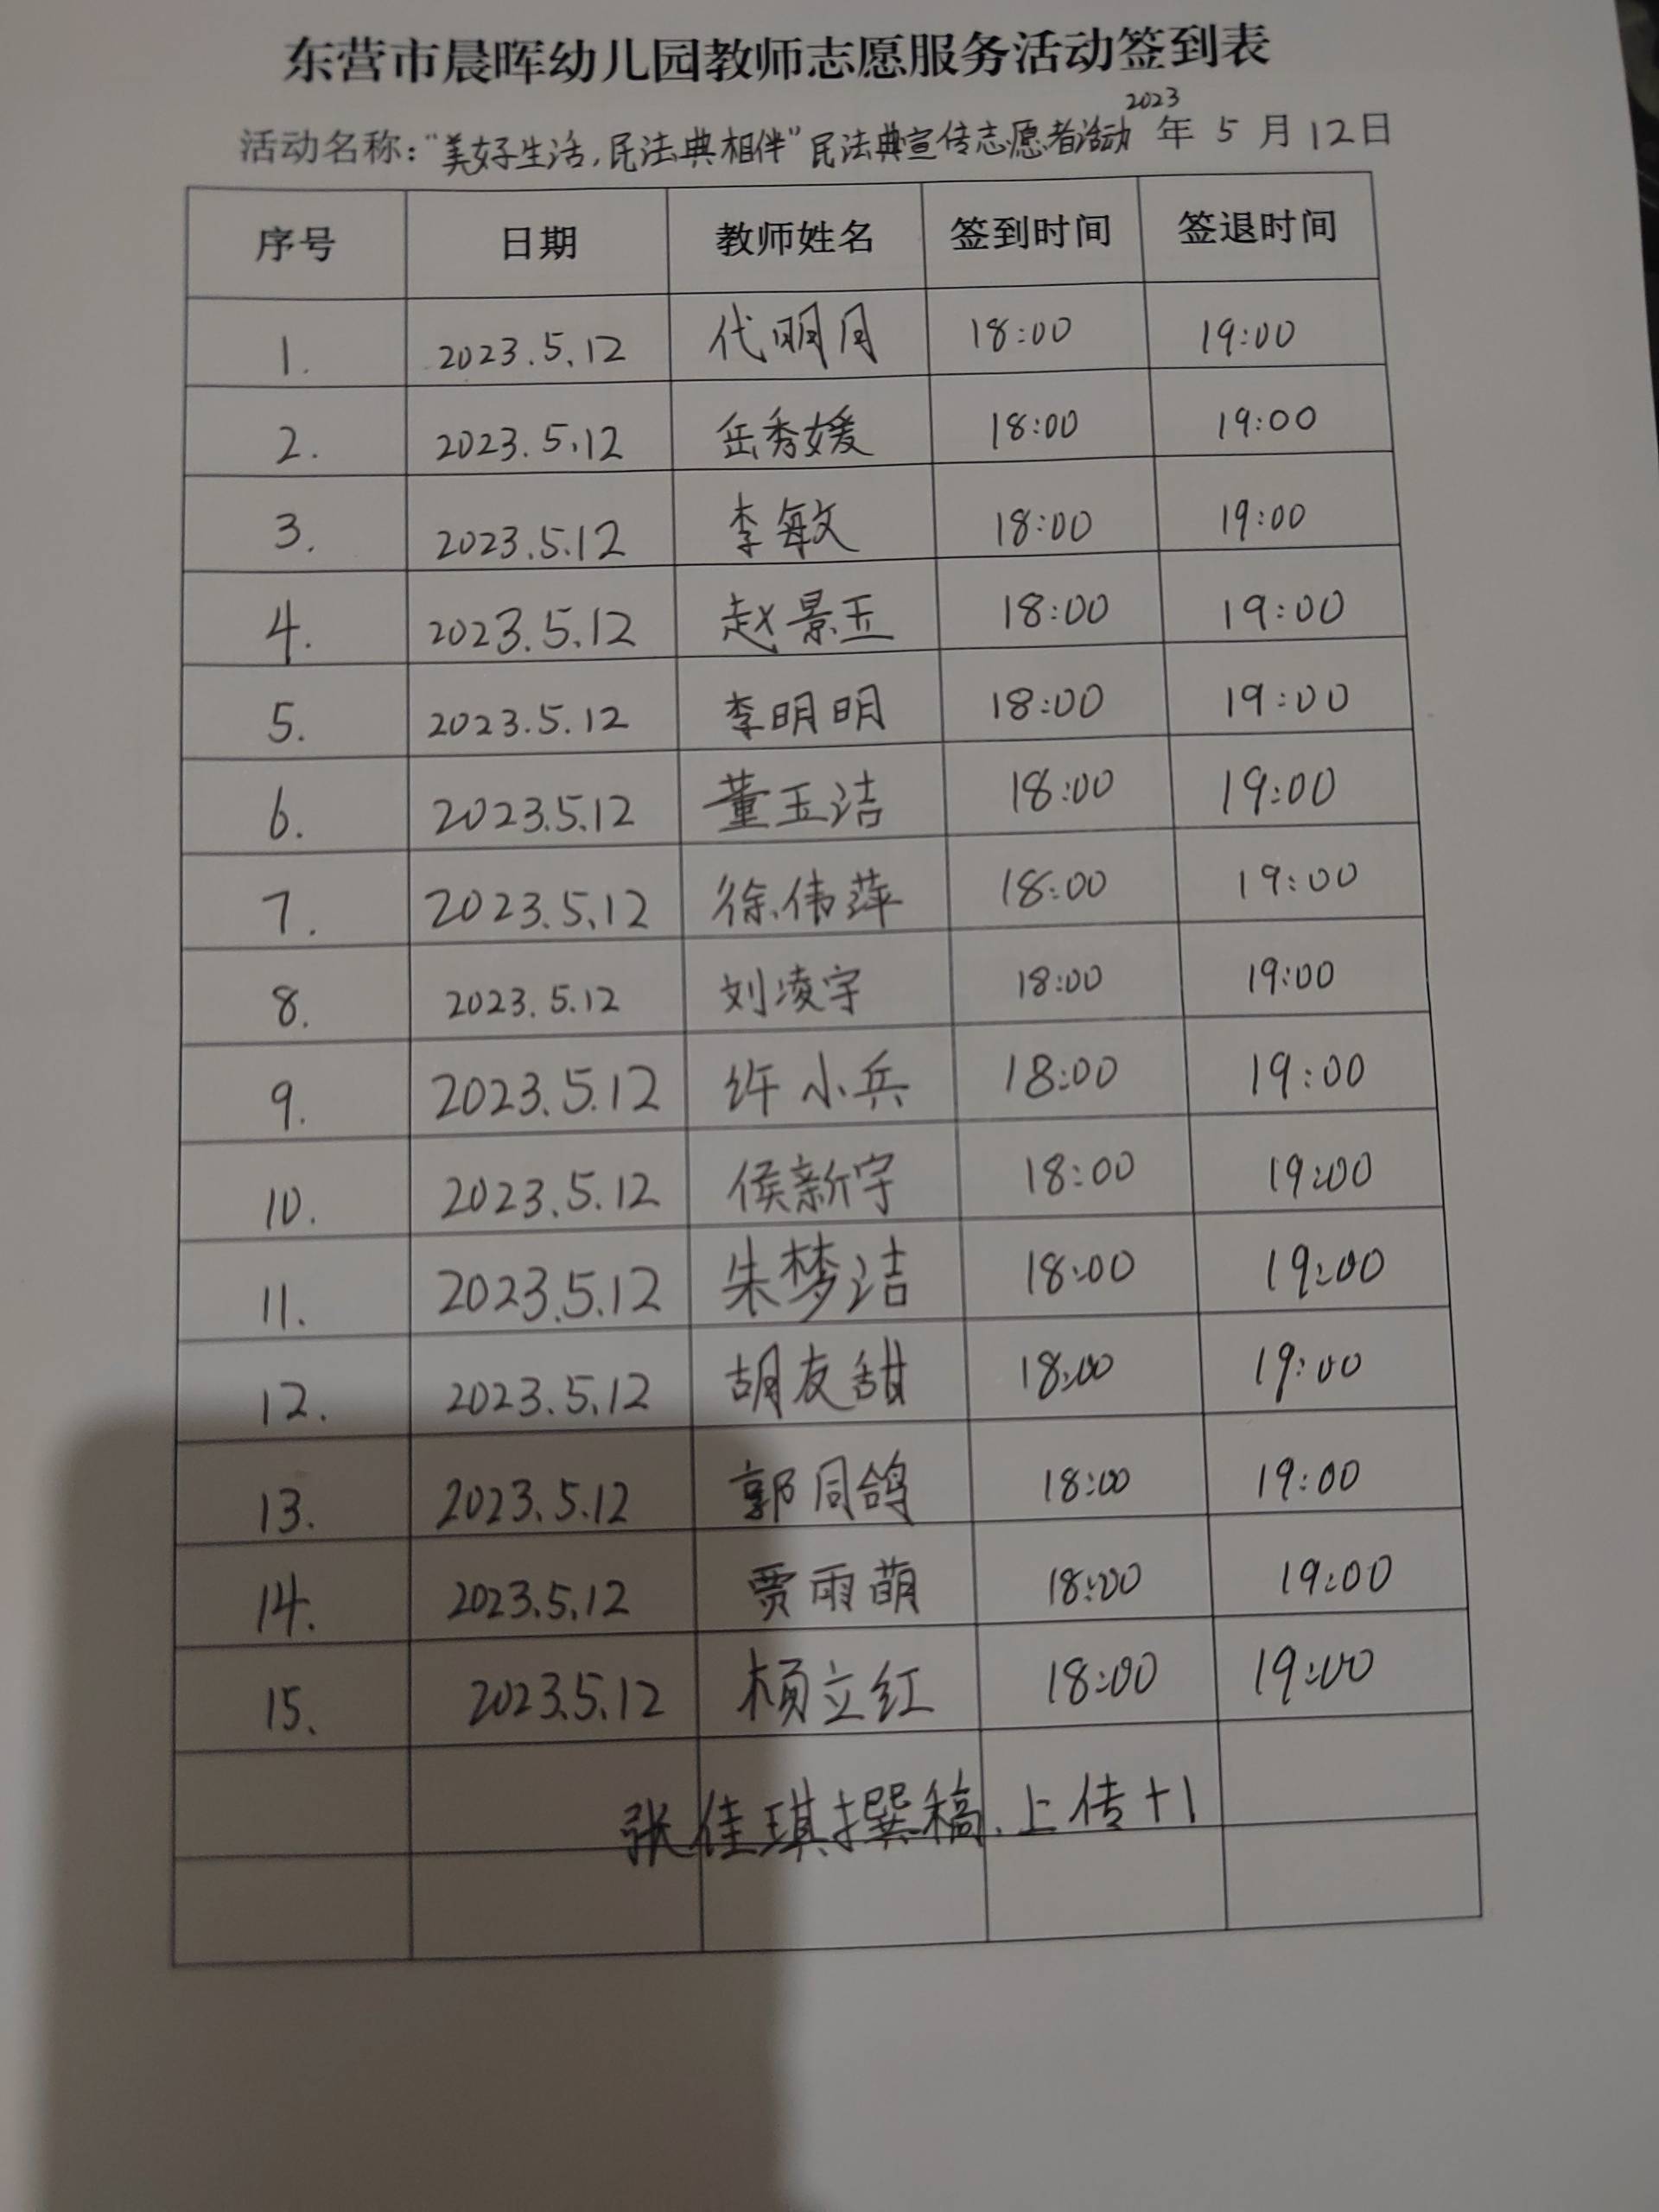 东营市晨晖幼儿园教师志愿服务活动签到表
活动名称:“美好生活,民法典相伴”民法典宣传志愿者活动 2023年 5 月 12日
序号 日期 教师姓名 签到时间 签退时间
1. 2023.5.12 代明月 18:00 19:00
2. 2023.5.12 岳秀媛 18:00 19:00
3. 2023.5.12 李敏 18:00 19:00
4. 2023.5.12 赵景玉 18:00 19:00
5. 2023.5.12 李明明 18:00 19:00
6. 2023.5.12 董玉洁 18:00 19:00
7. 2023.5.12 徐伟萍 18:00 19:00
8. 2023.5.12 刘凌宇 18:00 19:00
9. 2023.5.12 许小兵 18:00 19:00
10. 2023.5.12 侯新宇 18:00 19:00
11. 2023.5.12 朱梦洁 18:00 19:00
12. 2023.5.12 胡友甜 18:00 19:00
13. 2023.5.12 郭同鸽 18:00 19:00
14. 2023.5.12 贾雨萌 18:00 19:00
15. 2023.5.12 立红 18:00 19:00
张佳琪撰稿、上传+1